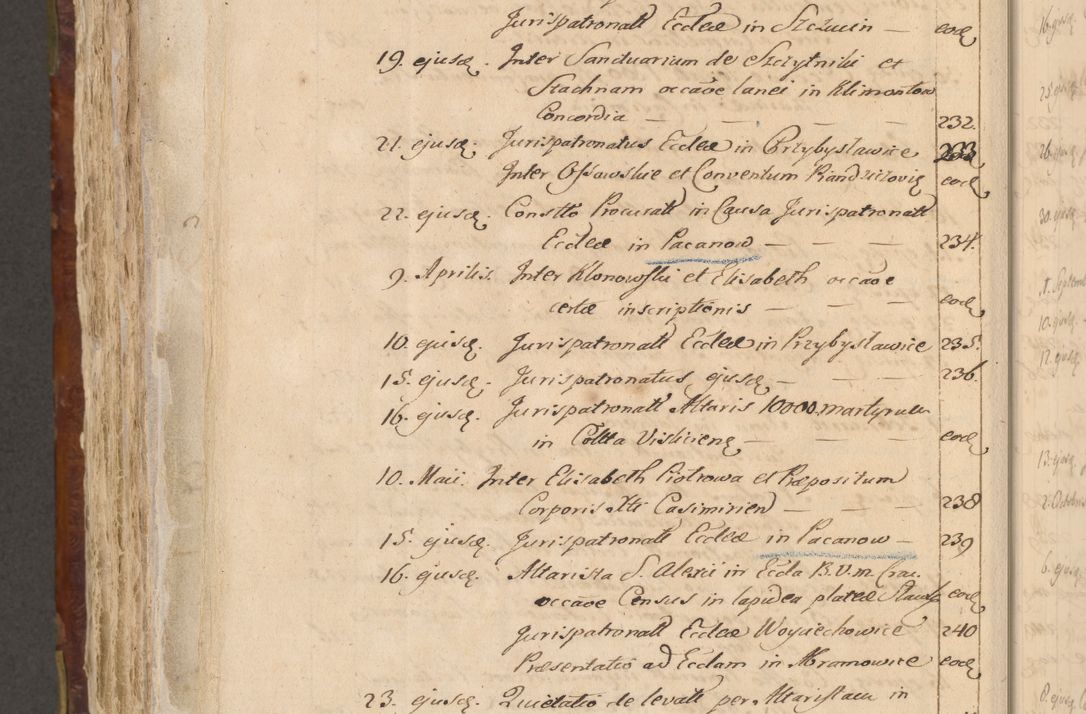 Jurispatronatt Eccleæ in Szczucin — eodē
19. ejusdē. Inter Sanduarium de Szczytniki et
Stachnam occaōe lanei in Klimontow
Concordia — — — — 232.
21. ejusdē. Jurispatronatus Eccleæ in Przybysławice 233
Inter Ossowskie et Conventum eodē
22. ejusdē. Consttō Procurat in Causa Jurispatronatt
Eccleæ in Pacanow — — — 234.
9. Aprilis. Inter Klonowski et Elisabeth occaōe
certæ inscriptionis — — — eodē
10. ejusdē. Jurispatronatt Eccleæ in Przybysławice 235.
15. ejusdē. Jurispatronatus ejusdē — — — 236.
16. ejusdē. Jurispatronatt Altaris 10000. martyrum
in Collta Vislicienē — — — eodē
10. Maii. Inter Elisabeth Piotrowa et Præpositum
Corporis Xti Casimirien — — — 238
15. ejusdē. Jurispatronatt Eccleæ in Pacanow — 239
16. ejusdē. Altarista S. Alexii in Eccla B.V.M. Crac.
occaōe Census in lapidea plateæ eodē
Jurispatronatt Eccleæ Woyciechowice 240
Præsentatio ad Ecclam in Abramowice eodē
23. ejusdē. Quietatio de levatt per Altaristam in